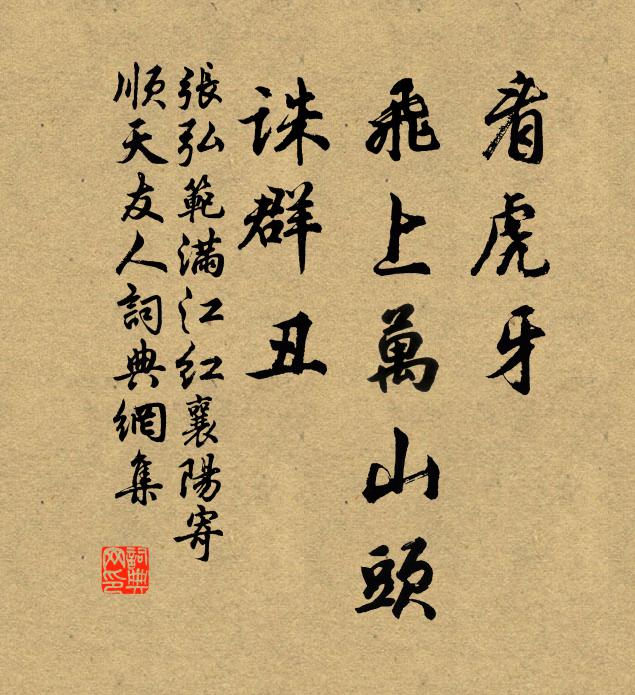 看虎牙
飛上萬山頭
誅群丑
張弘範滿江红襄陽寄
順天友人詞典網集
詞典网印